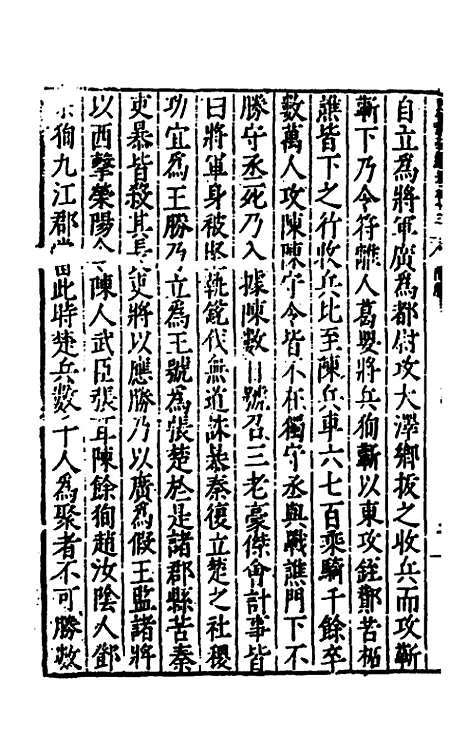 自立爲將軍廣爲都尉攻大澤鄉拔之收兵而攻蘄
蘄下乃令符離人葛嬰將兵徇蘄以東攻銍酇苦柘
譙皆下之行收兵比至陳兵車六七百乘騎千餘卒
數萬人攻陳陳守令皆不在獨守丞與戰譙門下不
勝守丞死乃入據陳數日號召三老豪傑會計事皆
曰將軍身被堅執銳伐無道誅暴秦復立楚之社稷
功宜爲王勝乃立爲王號爲張楚於是諸郡縣苦秦
吏暴皆殺其長吏將以應勝乃以廣爲假王監諸將
以西擊滎陽令陳人武臣張耳陳餘徇趙汝陰人鄧
宗徇九江郡當此時楚兵數千人爲聚者不可勝數